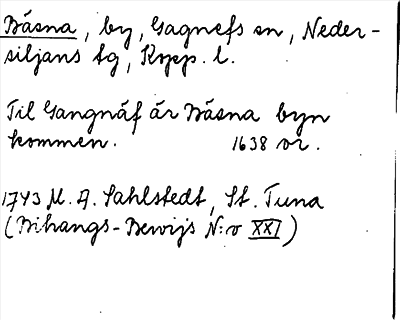 Bäsna, by, Gagnefs sn, Neder-
siljans tg, Kopp. l.
Til Gangnäf är Bäsna byn
kommen. 1638 or.
1743 M. A. Sahlstedt, St. Tuna
(Bihangs-Bewijs N:o XXI)